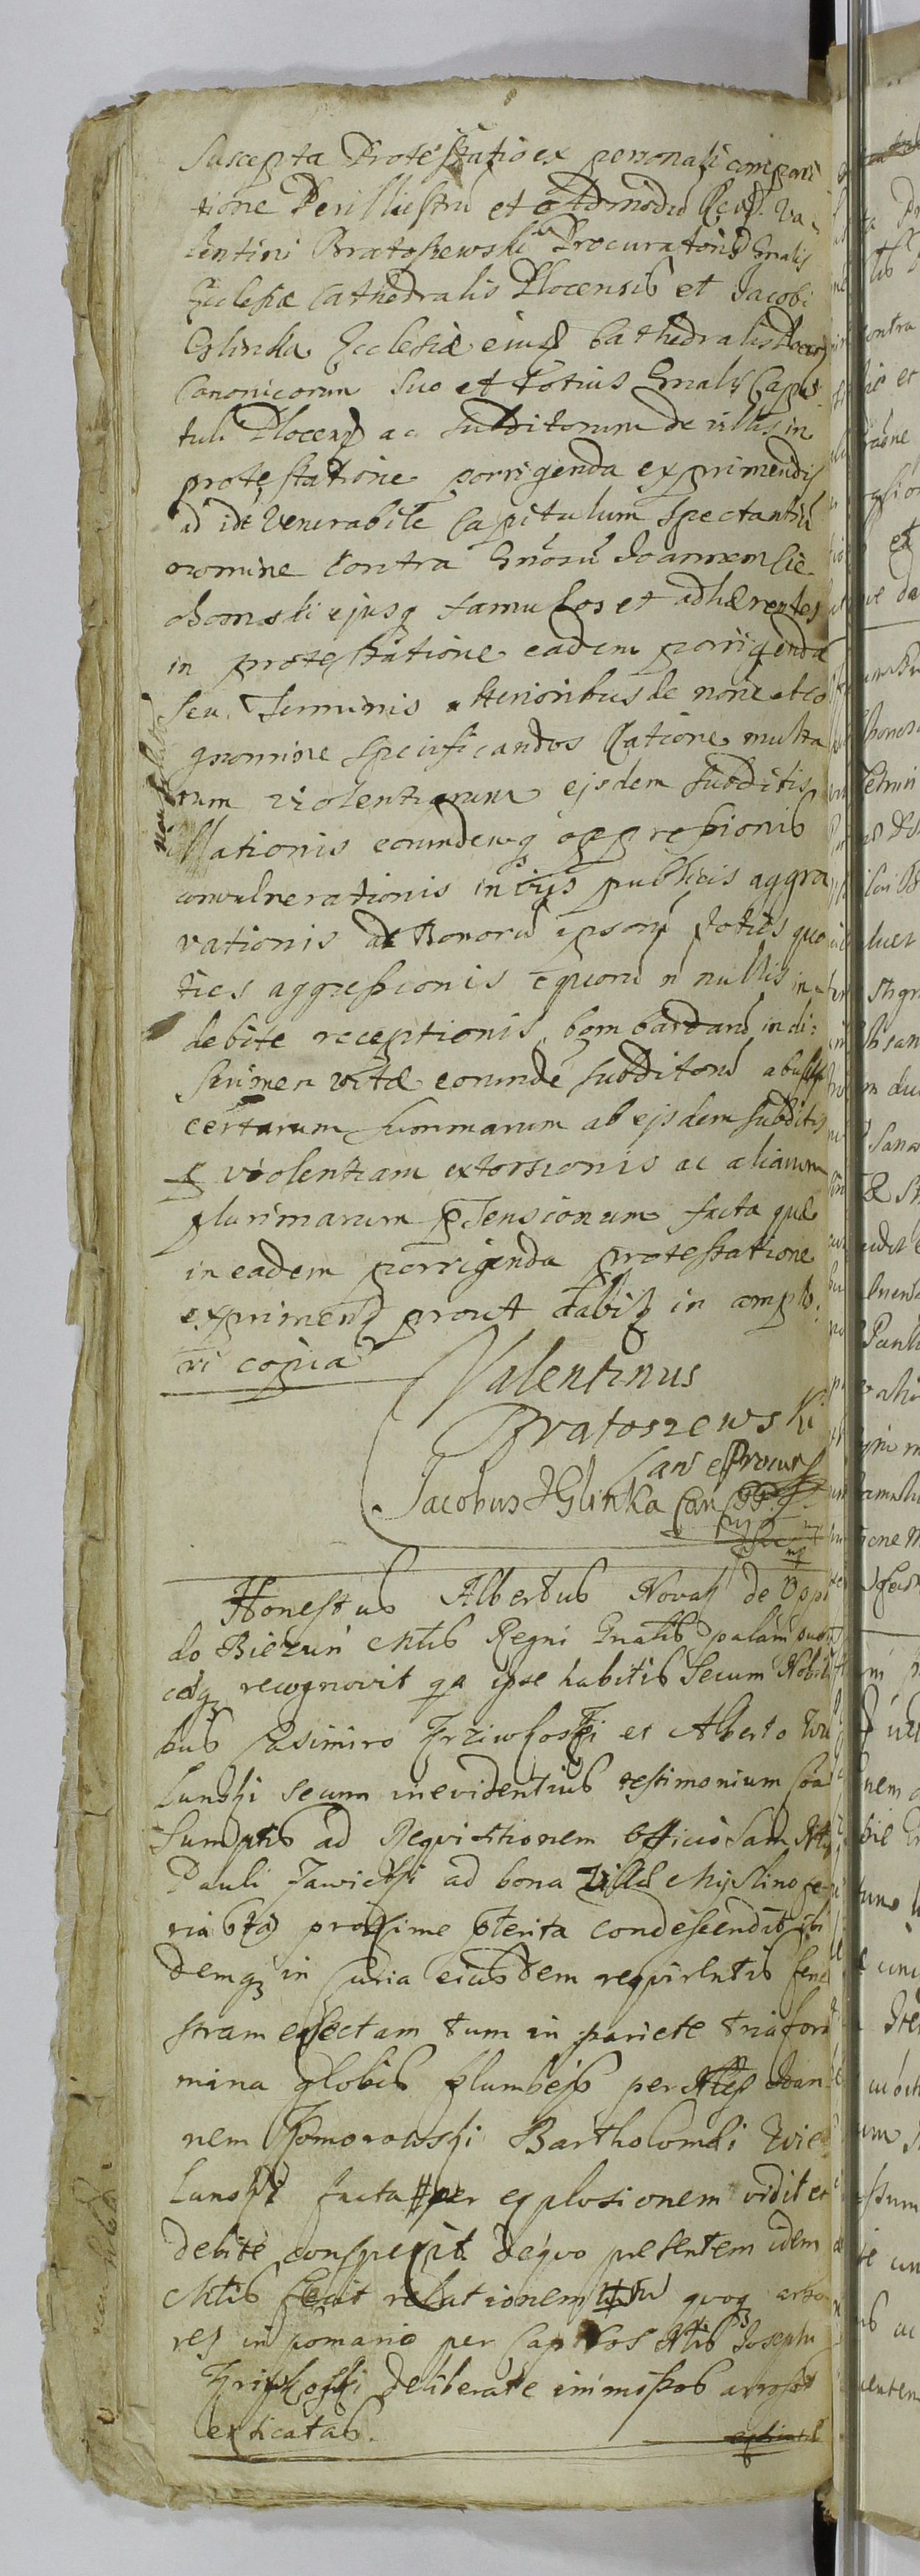 Suscepta Protestatio ex personali compari
tione Perillustru et Admodu Rcud. Va-
lentini Bratoszewski Procuratoris Gnalis
Ecclesiæ Cathedralis Plocensis et Jacobi
Glinka Ecclesiæ eiusd Cathedralis Plocens
Canonicorum suo et totius Gnalis Capi-
tuli Plocens ac subditorum de villis in
protestatione porrigenda exprimendis
ad ide Venerabile Capitulum spectantiu
nomine contra Gnosu Joannem Cie-
chomski ejusq famulos et adhærentes
in protestatione eadem porrigenda
seu Terminis ulterioribus de noïe et co
gnomine specificandos Ratione multa
rum violentiarum ejsdem subditis
illationis eorundemq oppressionis
convulnerationis in vijs publicis aggra
vationis ad Bonoru ipsoru toties quo
ties aggressionis equoru n nullis in-
debite receptionis, bombardaru in di:
scrimen vitæ eorunde subditoru
certarum summarum ab ejsdem subditis
p violentiam extorsionis ac aliarum
plurimarum ptensionum facta quæ
in eadem porrigenda protestatione
exprimend prout dabit in
ri copia
Valentinus
Bratoszewski
Can et Procur
Jacobus J Glinka Can
Honestus Albertus Novak de Oppi
do Biezuń Mtis Regni Gnalis palam
cdq recognovit qa ipse habitis secum Nobili
bus Casimiro et Alberto Wie
lunski secum in evidentius testimonium
sumptis ad Requisitionem officiosam
Pauli Zawicki ad bona Villæ Myslino fe
ria proxime pterita condescendit ibi
demq in Curia eiusdem requirentis fene
stram ejectam tum in pariete tria fora
mina globis plumbejs per Joan
nem Komorowski Bartholomæi Wie
lunski facta per explosionem vidit et
debite conspexit. de quo præsentem idem
Mtis fecit relationem quoq arbo
res in pomario per Capros Josephi
deliberate immissos arrosas
exsicatas.